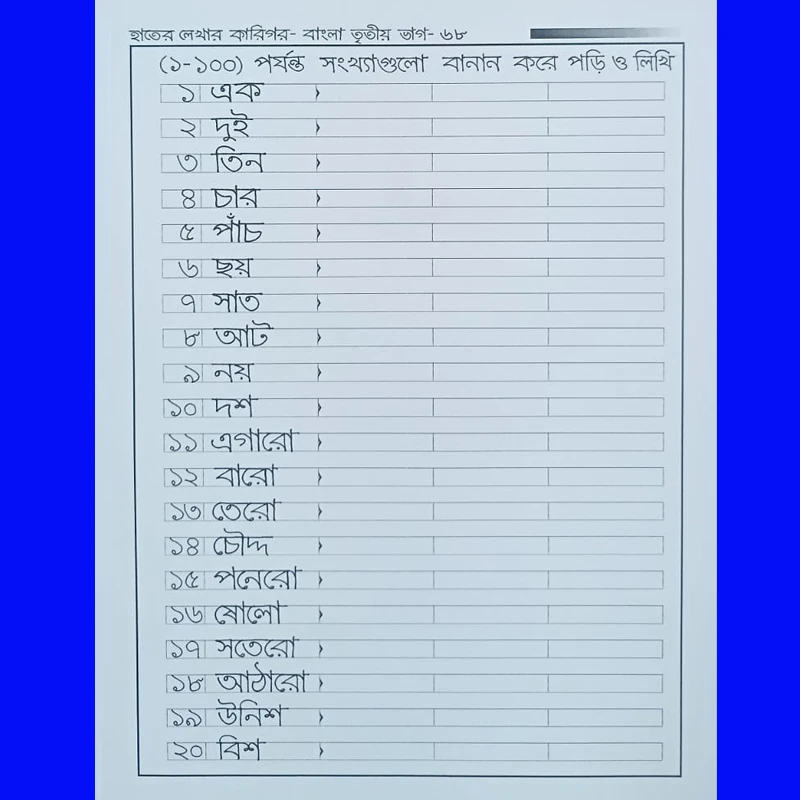 হাতের লেখার কারিগর- বাংলা তৃতীয় ভাগ- ৬৮
(১-১০০) পর্যন্ত সংখ্যাগুলো বানান করে পড়ি ও লিখি
১ এক
২ দুই
৩ তিন
৪ চার
৫ পাঁচ
৬ ছয়
৭ সাত
৮ আট
৯ নয়
১০ দশ
১১ এগারো
১২ বারো
১৩ তেরো
১৪ চৌদ্দ
১৫ পনেরো
১৬ ষোলো
১৭ সতেরো
১৮ আঠারো
১৯ উনিশ
২০ বিশ